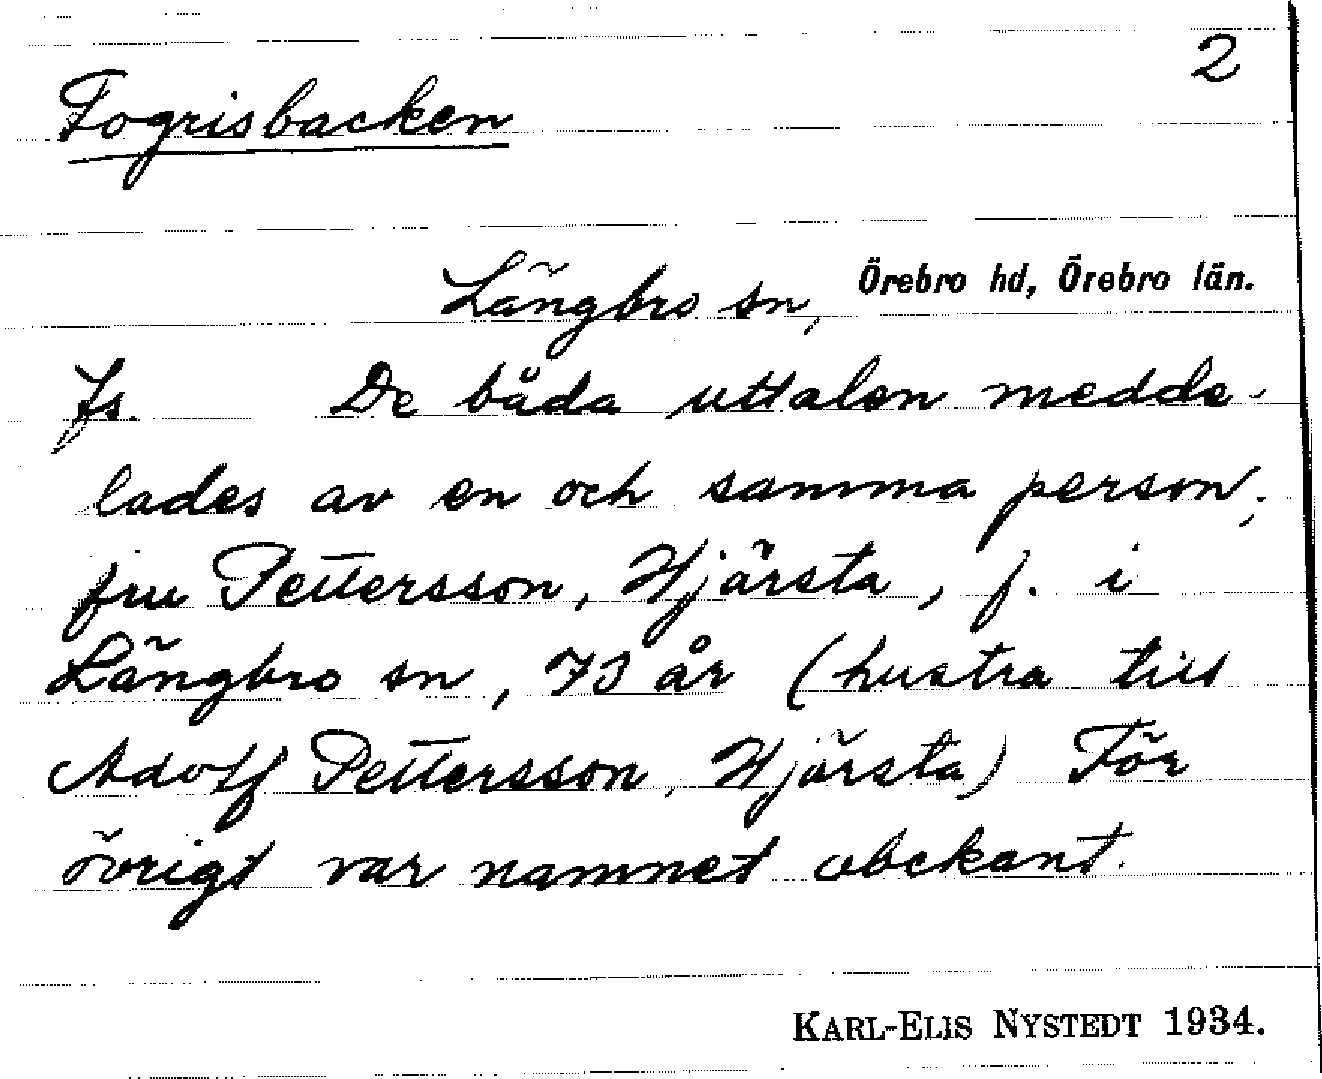 2
Fogrisbacken
Längbro sn, Örebro hd, Örebro län.
Fs. De båda uttalen medde-
lades av en och samma person,
fru Pettersson, Hjärsta, f. i
Längbro sn, 73 år (hustru till
Adolf Pettersson, Hjärsta) För
övrigt var namnet obekant.
KARL-ELIS NYSTEDT 1934.